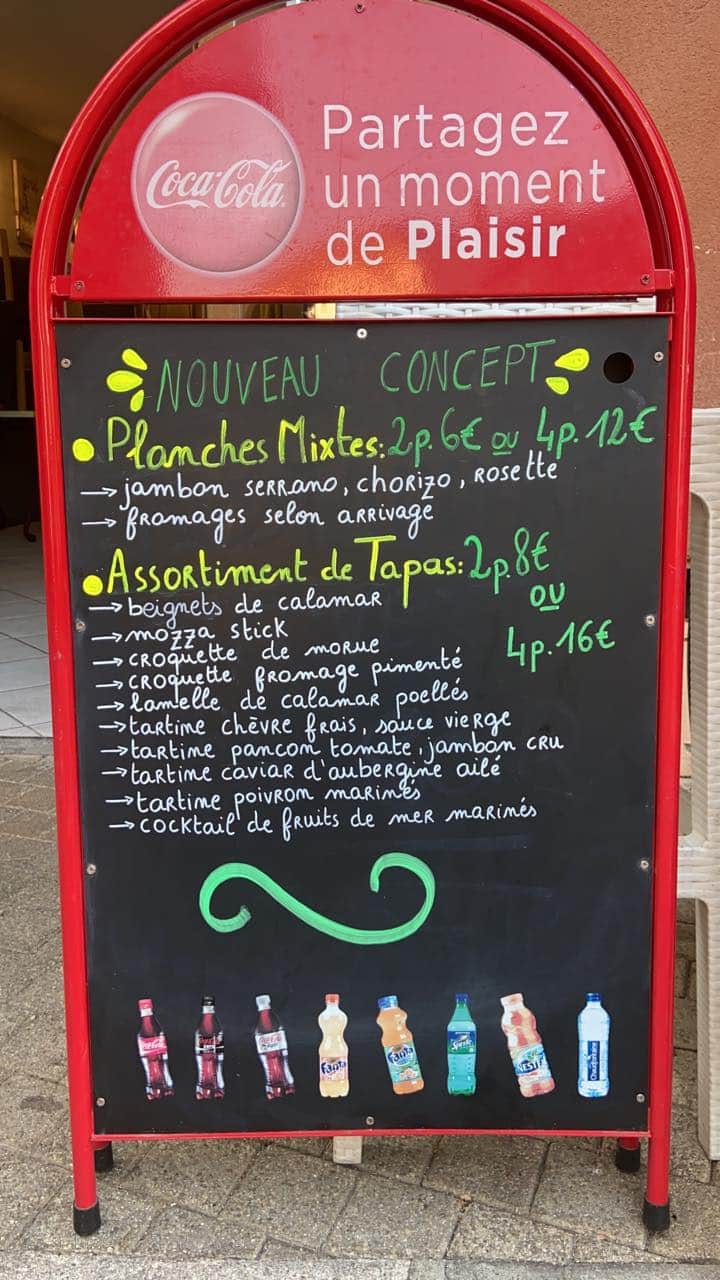 Coca-Cola
Partagez
un moment
de Plaisir
NOUVEAU CONCEPT
Planches Mixtes: 2p. 6€ ou 4p. 12€
→ jambon serrano, chorizo, rosette
→ fromages selon arrivage
Assortiment de Tapas: 2p. 8€
ou
4p. 16€
→ beignets de calamar
→ mozza stick
→ croquette de morue
→ croquette fromage pimenté
→ lamelle de calamar poellés
→ tartine chèvre frais, sauce vierge
→ tartine pancon tomate, jambon cru
→ tartine caviar d'aubergine ailé
→ tartine poivron marinés
→ cocktail de fruits de mer marinés
Coca-Cola
Fanta
Fanta
Sprite
NESTEA
Chaudfontaine